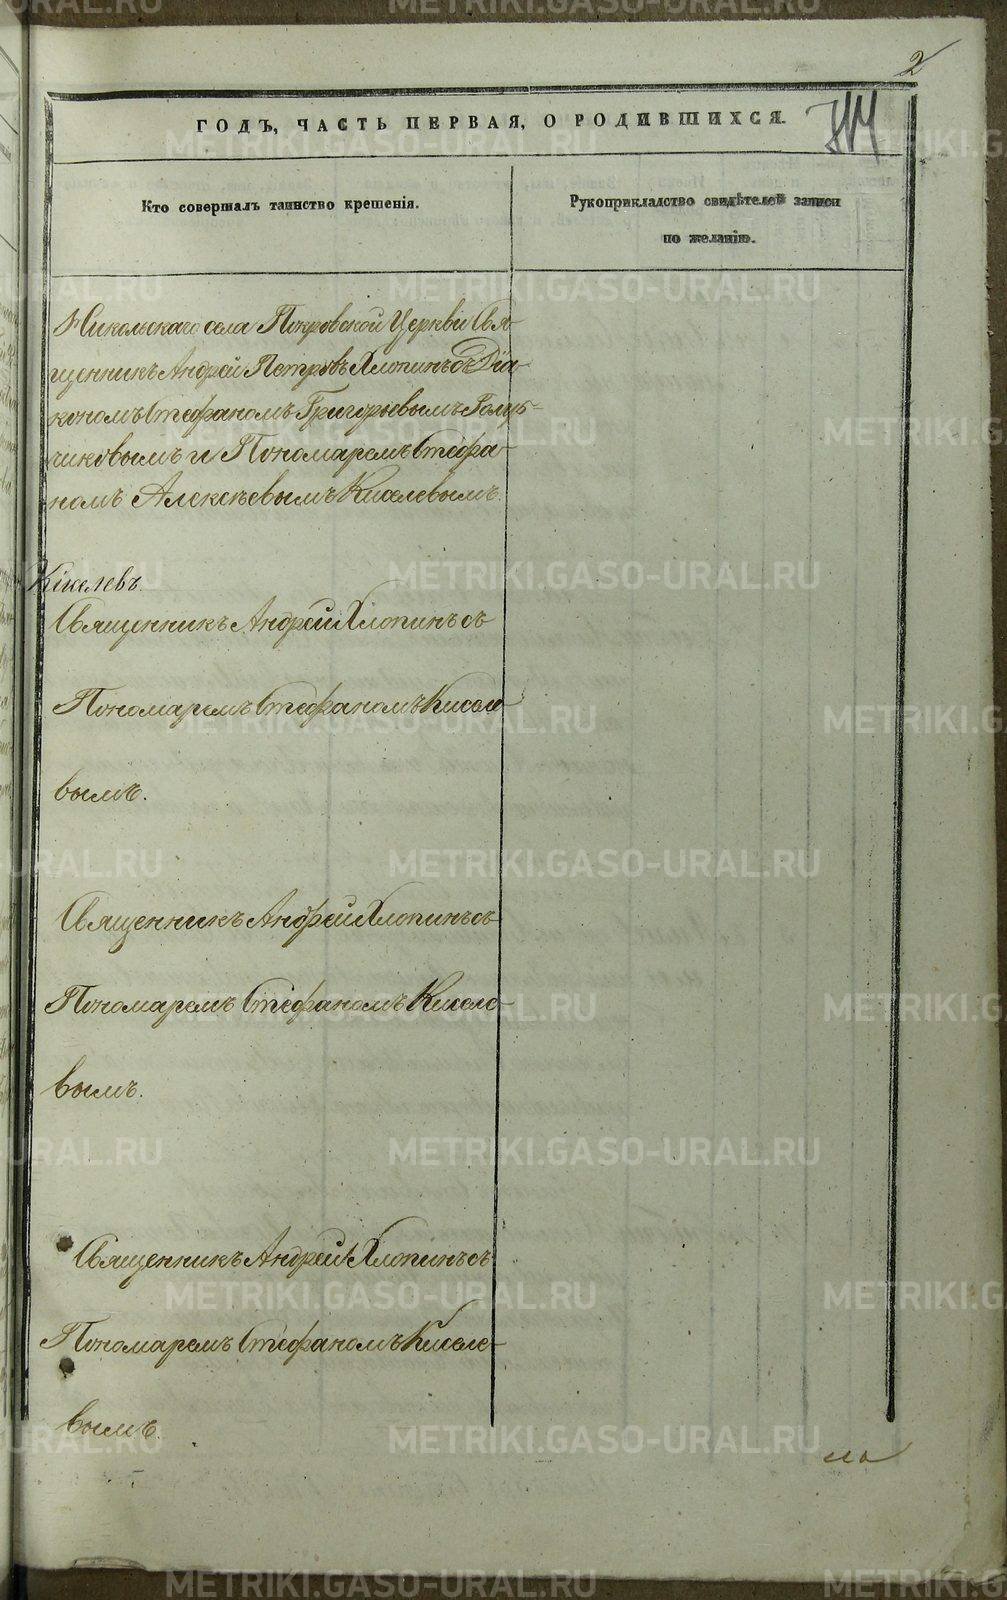 2
ГОДЪ, ЧАСТЬ ПЕРВАЯ, О РОДИВШИХСЯ.
Кто совершалъ таинство крещенія.
Рукоприкладство свидѣтелей записи
по желанію.
Никольскаго села Покровской Церкви Свя-
щенникъ Андрей Петровъ Хлопинъ съ Діа-
кономъ Стефаномъ Григорьевымъ Голуб-
чиковымъ и Пономаремъ Стефа-
номъ Алексѣевымъ Киселевымъ.
Священникъ Андрей Хлопинъ съ
Пономаремъ Стефаномъ Киселе-
вымъ.
Священникъ Андрей Хлопинъ съ
Пономаремъ Стефаномъ Киселе-
вымъ.
Священникъ Андрей Хлопинъ съ
Пономаремъ Стефаномъ Киселе-
вымъ.
METRIKI.GASO-URAL.RU